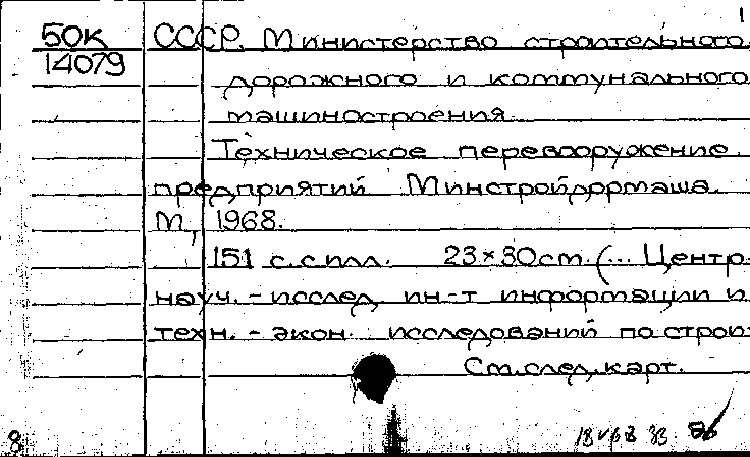 1
50к СССР. Министерство строительного
14079
дорожного и коммунального
машиностроения
Техническое перевооружение
предприятий Минстройдормаша.
М., 1968.
151 с. с илл. 23×30 см. (... Центр.
науч.-исслед. ин-т информации и
техн.-экон. исследований по строи
См. след. карт.
8